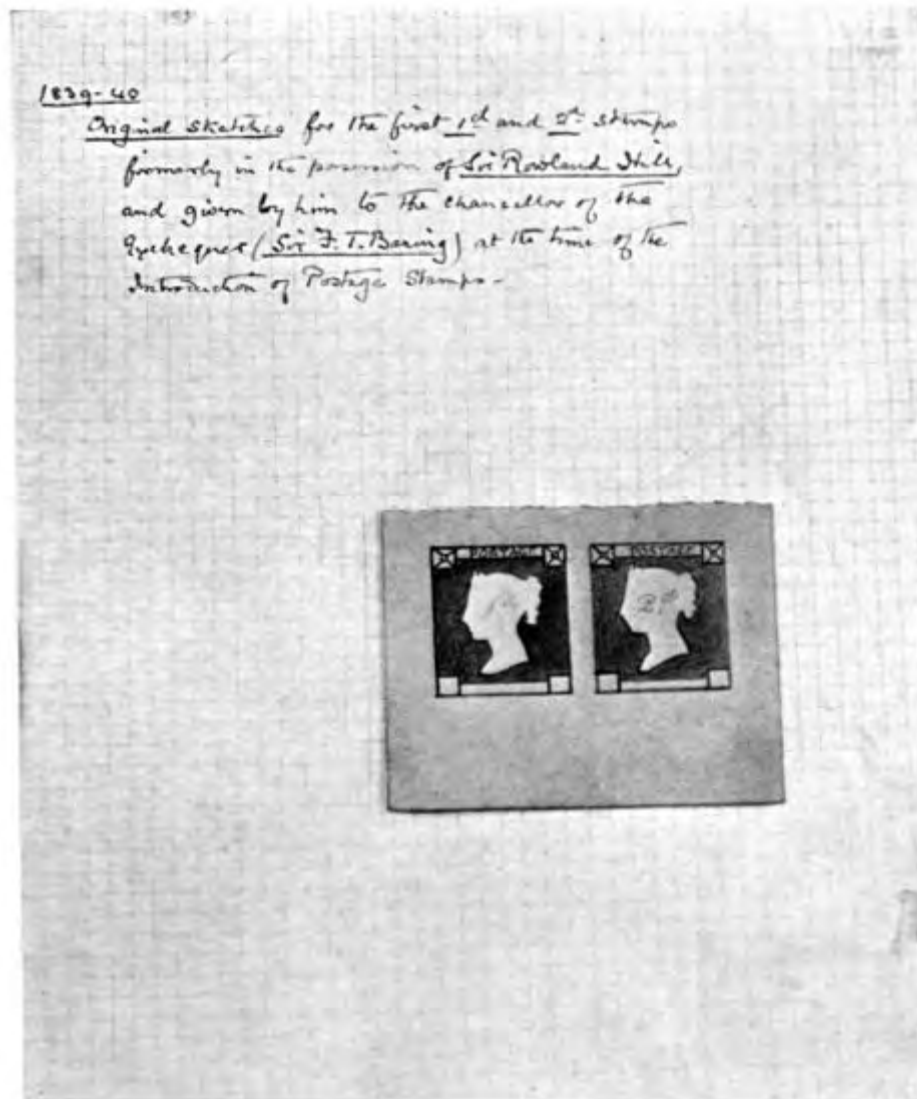 1839-40
Original Sketches for the first 1d and 2d stamps
formerly in the possession of Sir Rowland Hill,
and given by him to the Chancellor of the
Exchequer (Sir F. T. Baring) at the time of the
Introduction of Postage Stamps-
POSTAGE POSTAGE
1d 2d